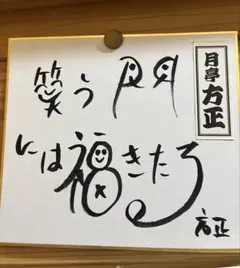 月亭方正
笑う門
には福きたる
方正